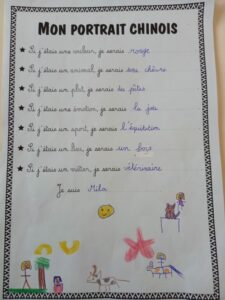 MON PORTRAIT CHINOIS
Si j'étais une couleur, je serais rouge
Si j'étais un animal, je serais une chèvre
Si j'étais un plat, je serais des pâtes
Si j'étais une émotion, je serais la joie
Si j'étais un sport, je serais l'équitation
Si j'étais un lieu, je serais un
Si j'étais un métier, je serais vétérinaire
Je suis Mila